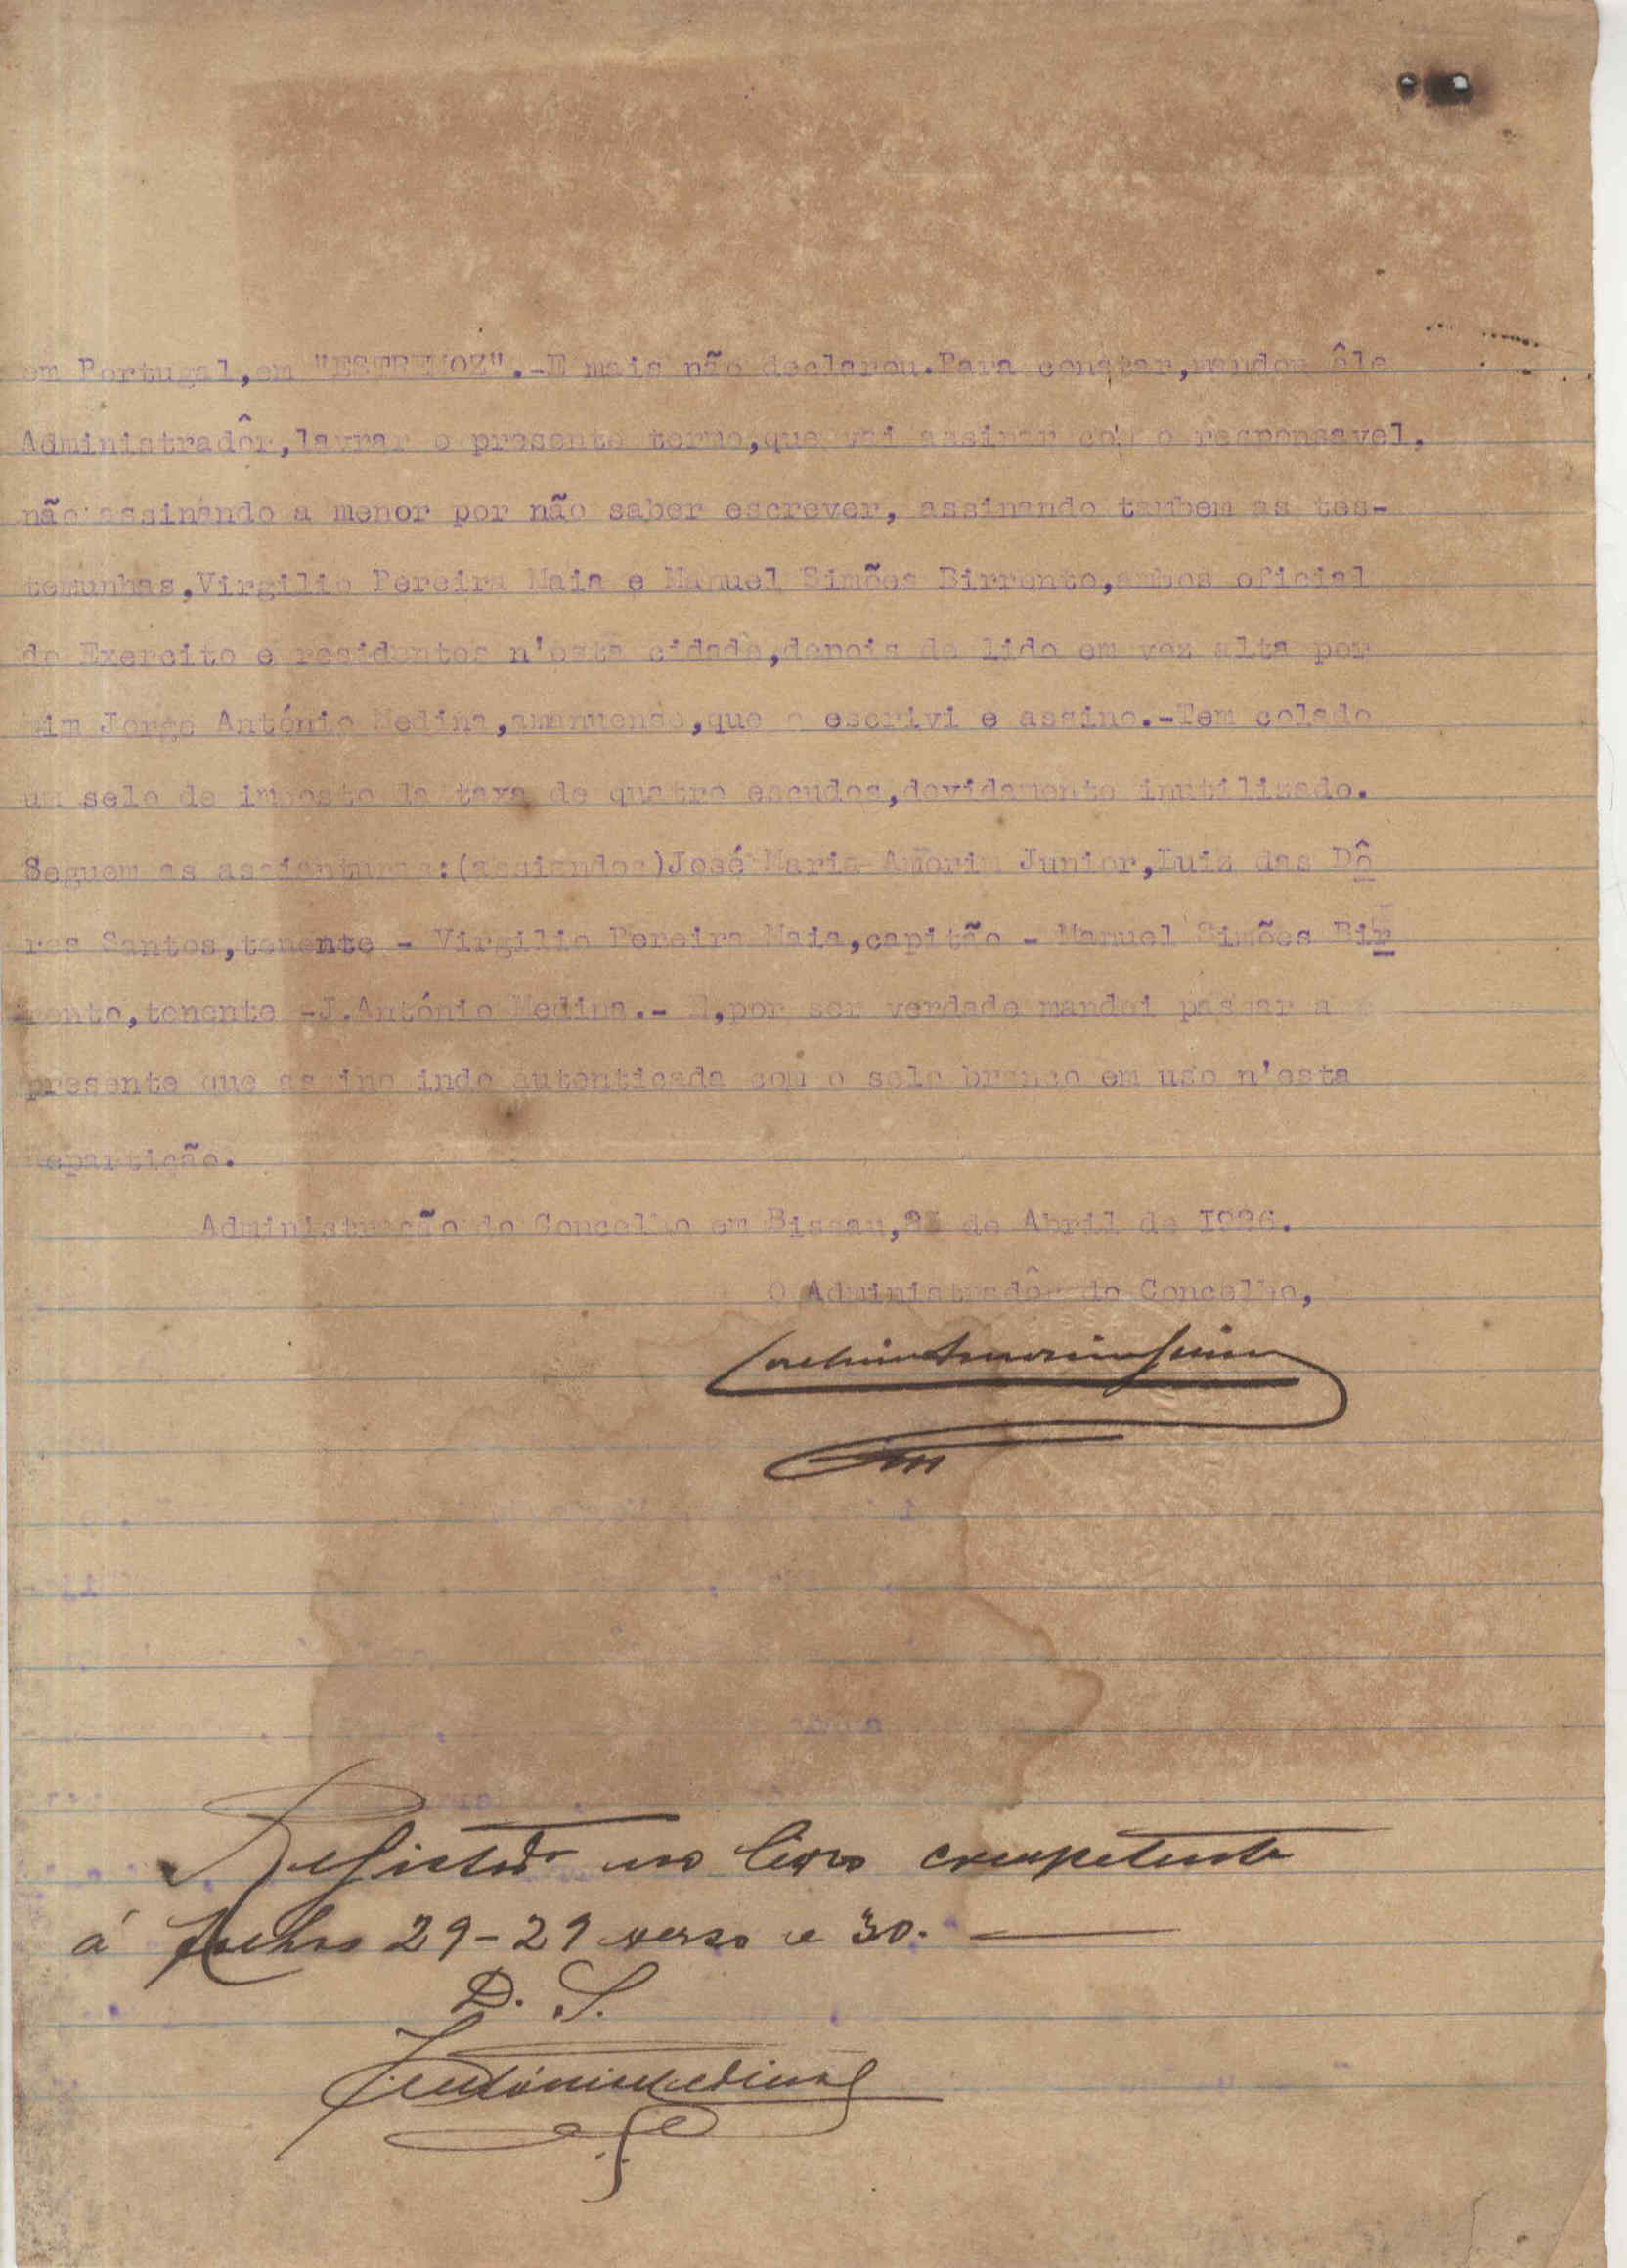 em Portugal,em "ESTREMOZ".-E mais não declarou.Para constar,mandou êle
Administradôr,lavrar o presente termo,que vai assinar com o responsavel,
não assinando a menor por não saber escrever, assinando tambem as tes-
temunhas,Virgilio Pereira Maia e Manuel Simões Birrento,ambos oficial
do Exercito e residentes n'esta cidade,depois de lido em voz alta por
mim Jorge António Medina,amanuense,que o escrivi e assino.-Tem colado
um selo de imposto da taxa de quatro escudos,devidamente inutilizado.
Seguem as assienturas:(assiandos)José Maria Amorim Junior,Luiz das Dô
res Santos,tenente - Virgilio Pereira Maia,capitão - Manuel Simões Bir
rento,tenente -J.António Medina.- E,por ser verdade mandei passar a
presente que assino indo autenticada com o selo branco em uso n'esta
Repartição.
Administração do Concelho em Bissau, de Abril de I926.
O Administradôr do Concelho,
Registado no livro competente
á folhas 29-29 verso e 30.
D. S.
J António Medina